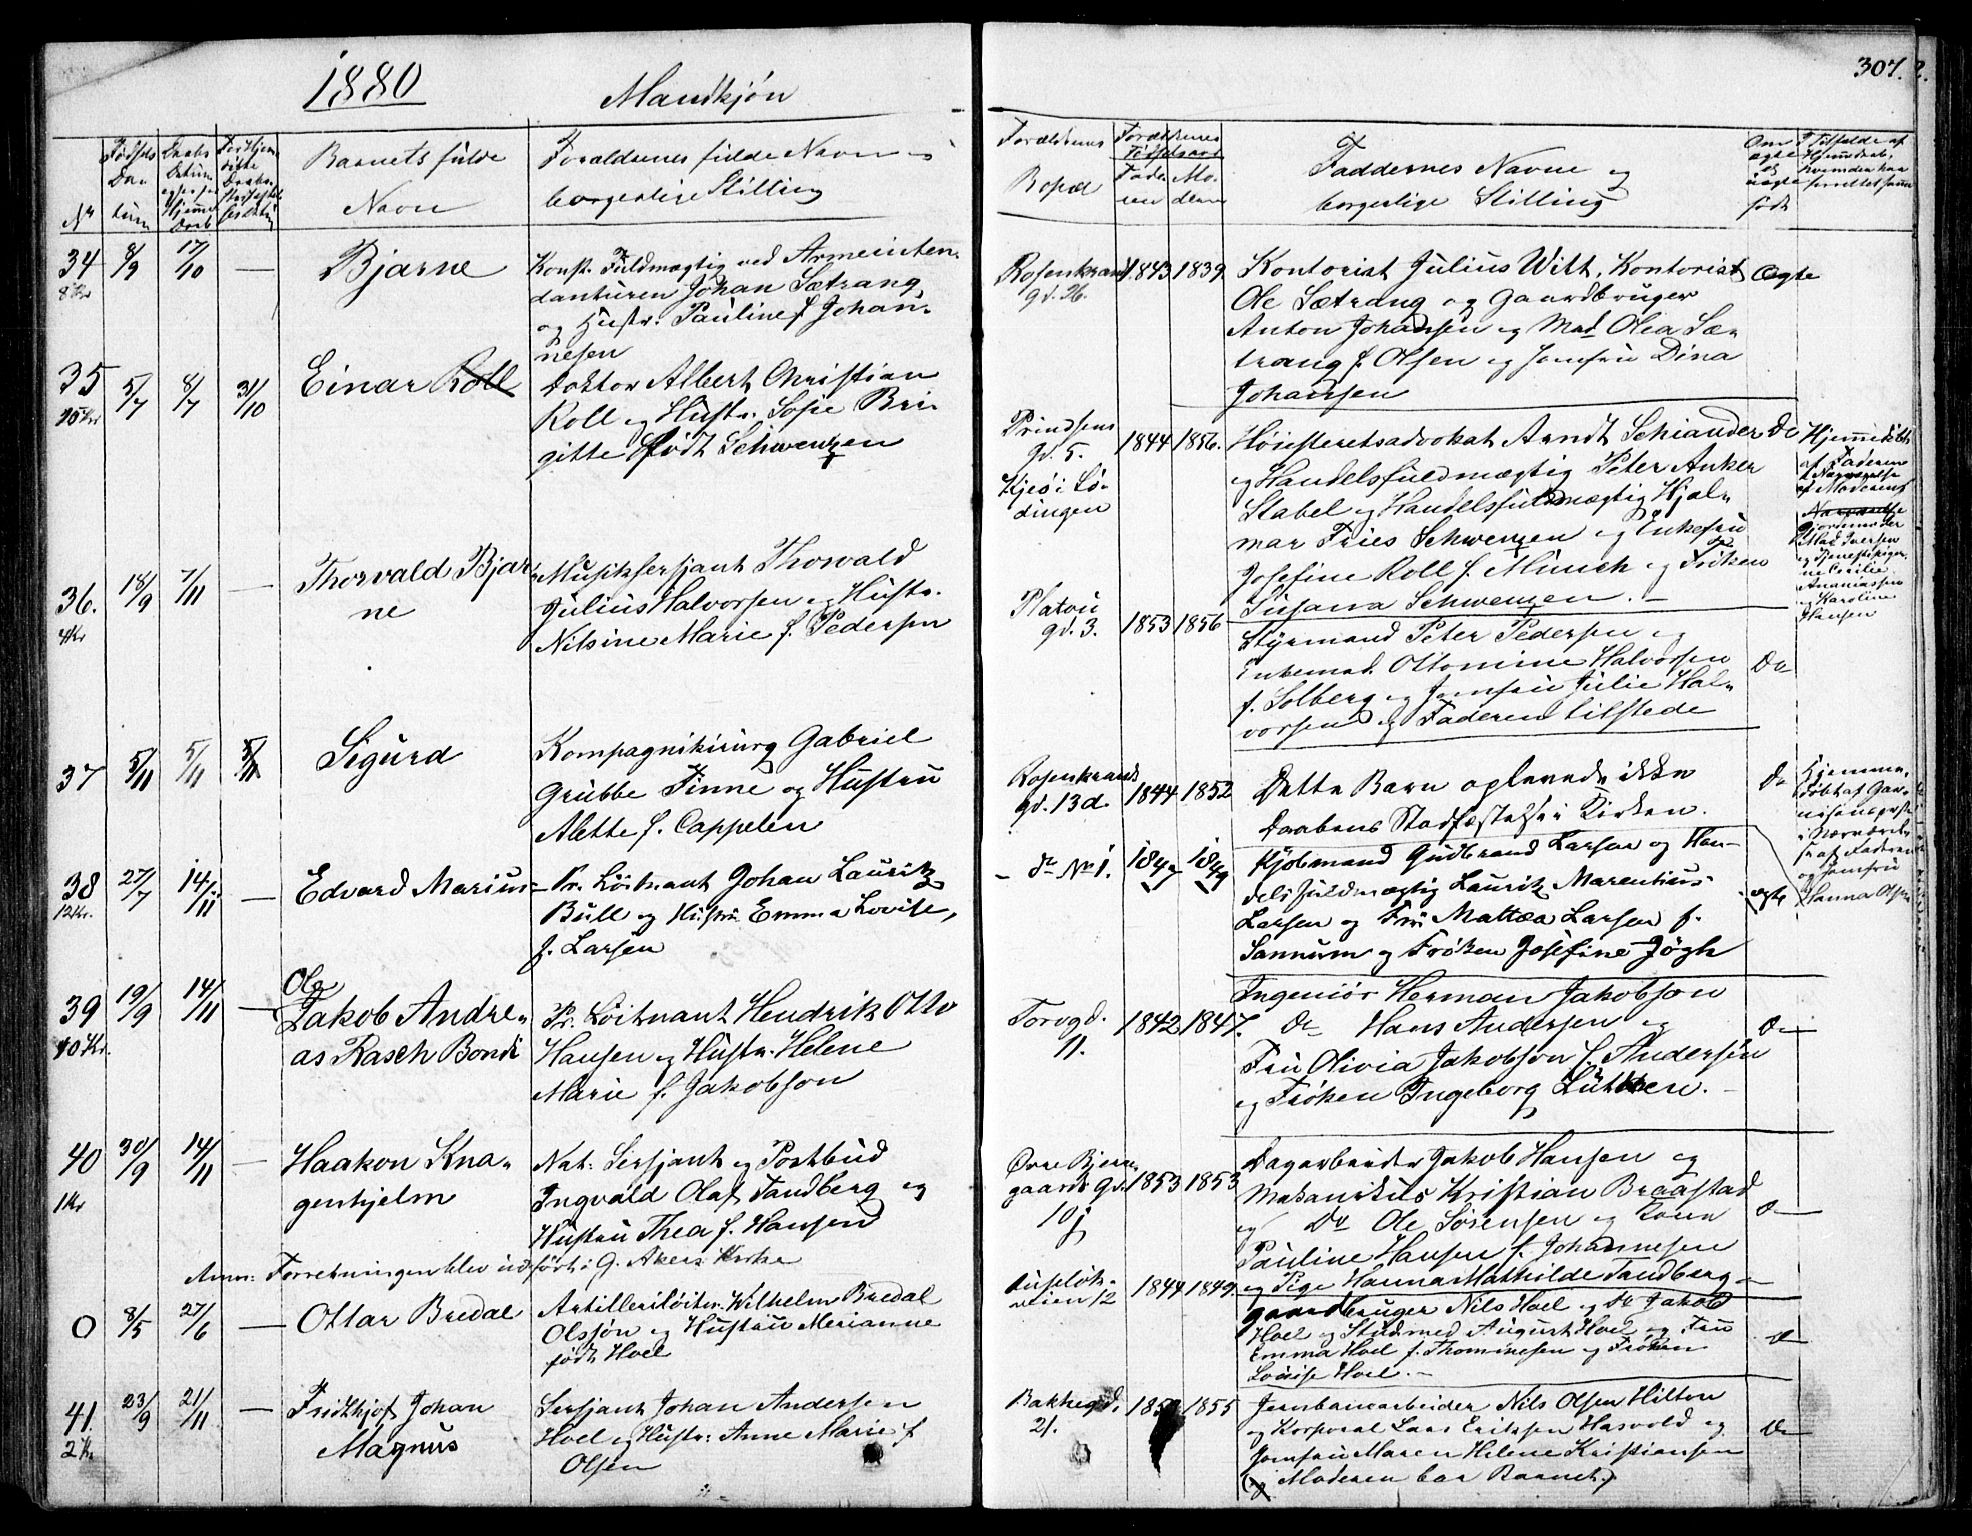 1880
Mandkjøn
307.
Nr
Fødsels Da- tum
Barnets fulde
Navn
Forældrenes fulde Navn og
borgerlige Stilling
Forældrenes
Bopæl
Forældrenes
Fødselsaar
Fade- ren
Mo- deren
Faddernes Navne og
borgerlige Stilling
Om ægte og uægte født
34 8/9 17/10 — Bjarne
8 Kr
Konst. Fuldmægtig ved Armeinten-
danturen Johan Sætrang
og Hustr. Pauline f. Johan-
nesen
Rosenkrands
gd. 26.
1843 1839.
Kontorist Julius Witt, Kontorist
Ole Sætrang og Gaardbruger
Anton Johansen og Mad Olea Sæ-
trang f. Olsen og Jomfru Dina
Johansen
Ægte
35 5/7 8/7 31/10 Einar Roll
Doktor Albert Christian
Roll og Hustr. Sofie Bri-
gitte Født Schwenzen
Prindsens
gd. 5.
Kjeø i Lø-
dingen
1844 1856.
Høiesteretsadvokat Arndt Schiander
og Handelsfuldmægtig Peter Anker
Stabel og Handelsfuldmægtig Hjal-
mar Fries Schwenzen og Enkefru
Josefine Roll f. Münch og Frøken
Susana Schwenzen. —
Do
Hjemmedøbt
af Faderen
i Nærværelse
af Moderen
Nærværelse
Gjordemoder
Mad Iversen
og Tjenestepiger-
ne Cecilie
Ananiassen
og Karoline
Hansen
36. 18/9 7/11 — Thorvald Bjar-
ne
4 Kr
Musikserjant Thorvald
Julius Halvorsen og Hustr.
Nilsine Marie f. Pedersen
Platou
gd. 3.
1853 1856
Styrmand Peter Pedersen og
Enkemad. Ottomine Halvorsen
f. Solberg og Jomfru Julie Hal-
vorsen og Faderen tilstede
Do
37 5/11 5/11 5/11 Sigurd
Kompagnikirurg Gabriel
Grubbe Finne og Hustru
Alette f. Cappelen
Rosenkrands
gd. 13 d.
1844 1852
Dette Barn oplevede ikke
Daabens Stadfæstelse i Kirken.
Do
Hjemme-
døbt af Gar-
nisonsprest
i Nærværel-
se af Faderen
og Jomfru
Hanna Olsen
38 27/7 14/11 — Edvard Marius
12 Kr.
Pr. Løitnant Johan Lauritz
Bull og Hustru Emma Lovise,
f. Larsen
do No 1. 1847 1849
Kjøbmand Gudbrand Larsen og Han-
delsfuldmægtig Lauritz Marentius
Larsen og Fru Mattea Larsen f.
Sannum og Frøken Josefine Jøgh
ægte
39 19/9 14/11 —
40 Kr.
Ole
Jakob Andre-
as Rasch Bonde
Pr. Løitnant Hendrik Otto
Hansen og Hustr. Helene
Marie f. Jakobson
Torvgd.
11.
1842 1847.
Ingeniør Herman Jakobson
Do Hans Andersen og
Fru Olivia Jakobson f. Andersen
og Frøken Ingeborg Lütken. —
Do
40 30/9 14/11 — Haakon Kna-
genhjelm
1 Kr
Nat: Serjant og Postbud
Ingvald Olaf Tandberg og
Hustru Thea f. Hansen
Øvre Bjerre-
gaards gd.
10 j
1853 1853
Dagarbeider Jakob Hansen og
Mekanikus Kristian Braastad
og Do Ole Sørensen og Kone
Pauline Hansen f. Johannesen
og Pige Hanna Mathilde Tandberg —
Do
Anm: Forretningen blev udført i G. Akers Kirke
0 8/5 27/6 — Ottar Bredal
Artilleriløitn. Wilhelm Bredal
Olssøn og Hustru Merianne
født Hoel
1844 1849.
Gaardbruger Nils Hoel og Do Jakob
Hoel og Stud. med August Hoel og Fru
Emma Hoel f. Thommesen og Frøken
Lovise Hoel. —
Do
41. 23/9 21/11 — Fridthjof Johan
Magnus
2 Kr
Serjant Johan Andersen
Hoel og Hustr: Anne Marie f.
Olsen
Bakkegd.
21.
1855
Jernbanearbeider Nils Olsen Hilton
og Korporal Lars Eriksen Hasvold og
Jomfru Maren Helene Kristiansen
(og Moderen bar Barnet.)
Do